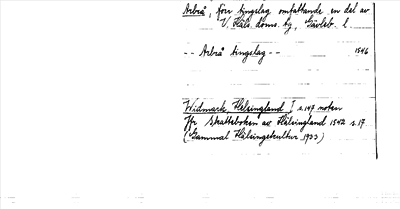 Arbrå, forn tingslag omfattande en del av
V. Häls. doms. by, Gävleb. l.
-- Arbrå tingslag -- 1546
Widmark, Helsingland I s. 147 noten
Jfr Skatteboken av Hälsingland 1542 s. 17
(Gammal Hälsingekultur 1933)